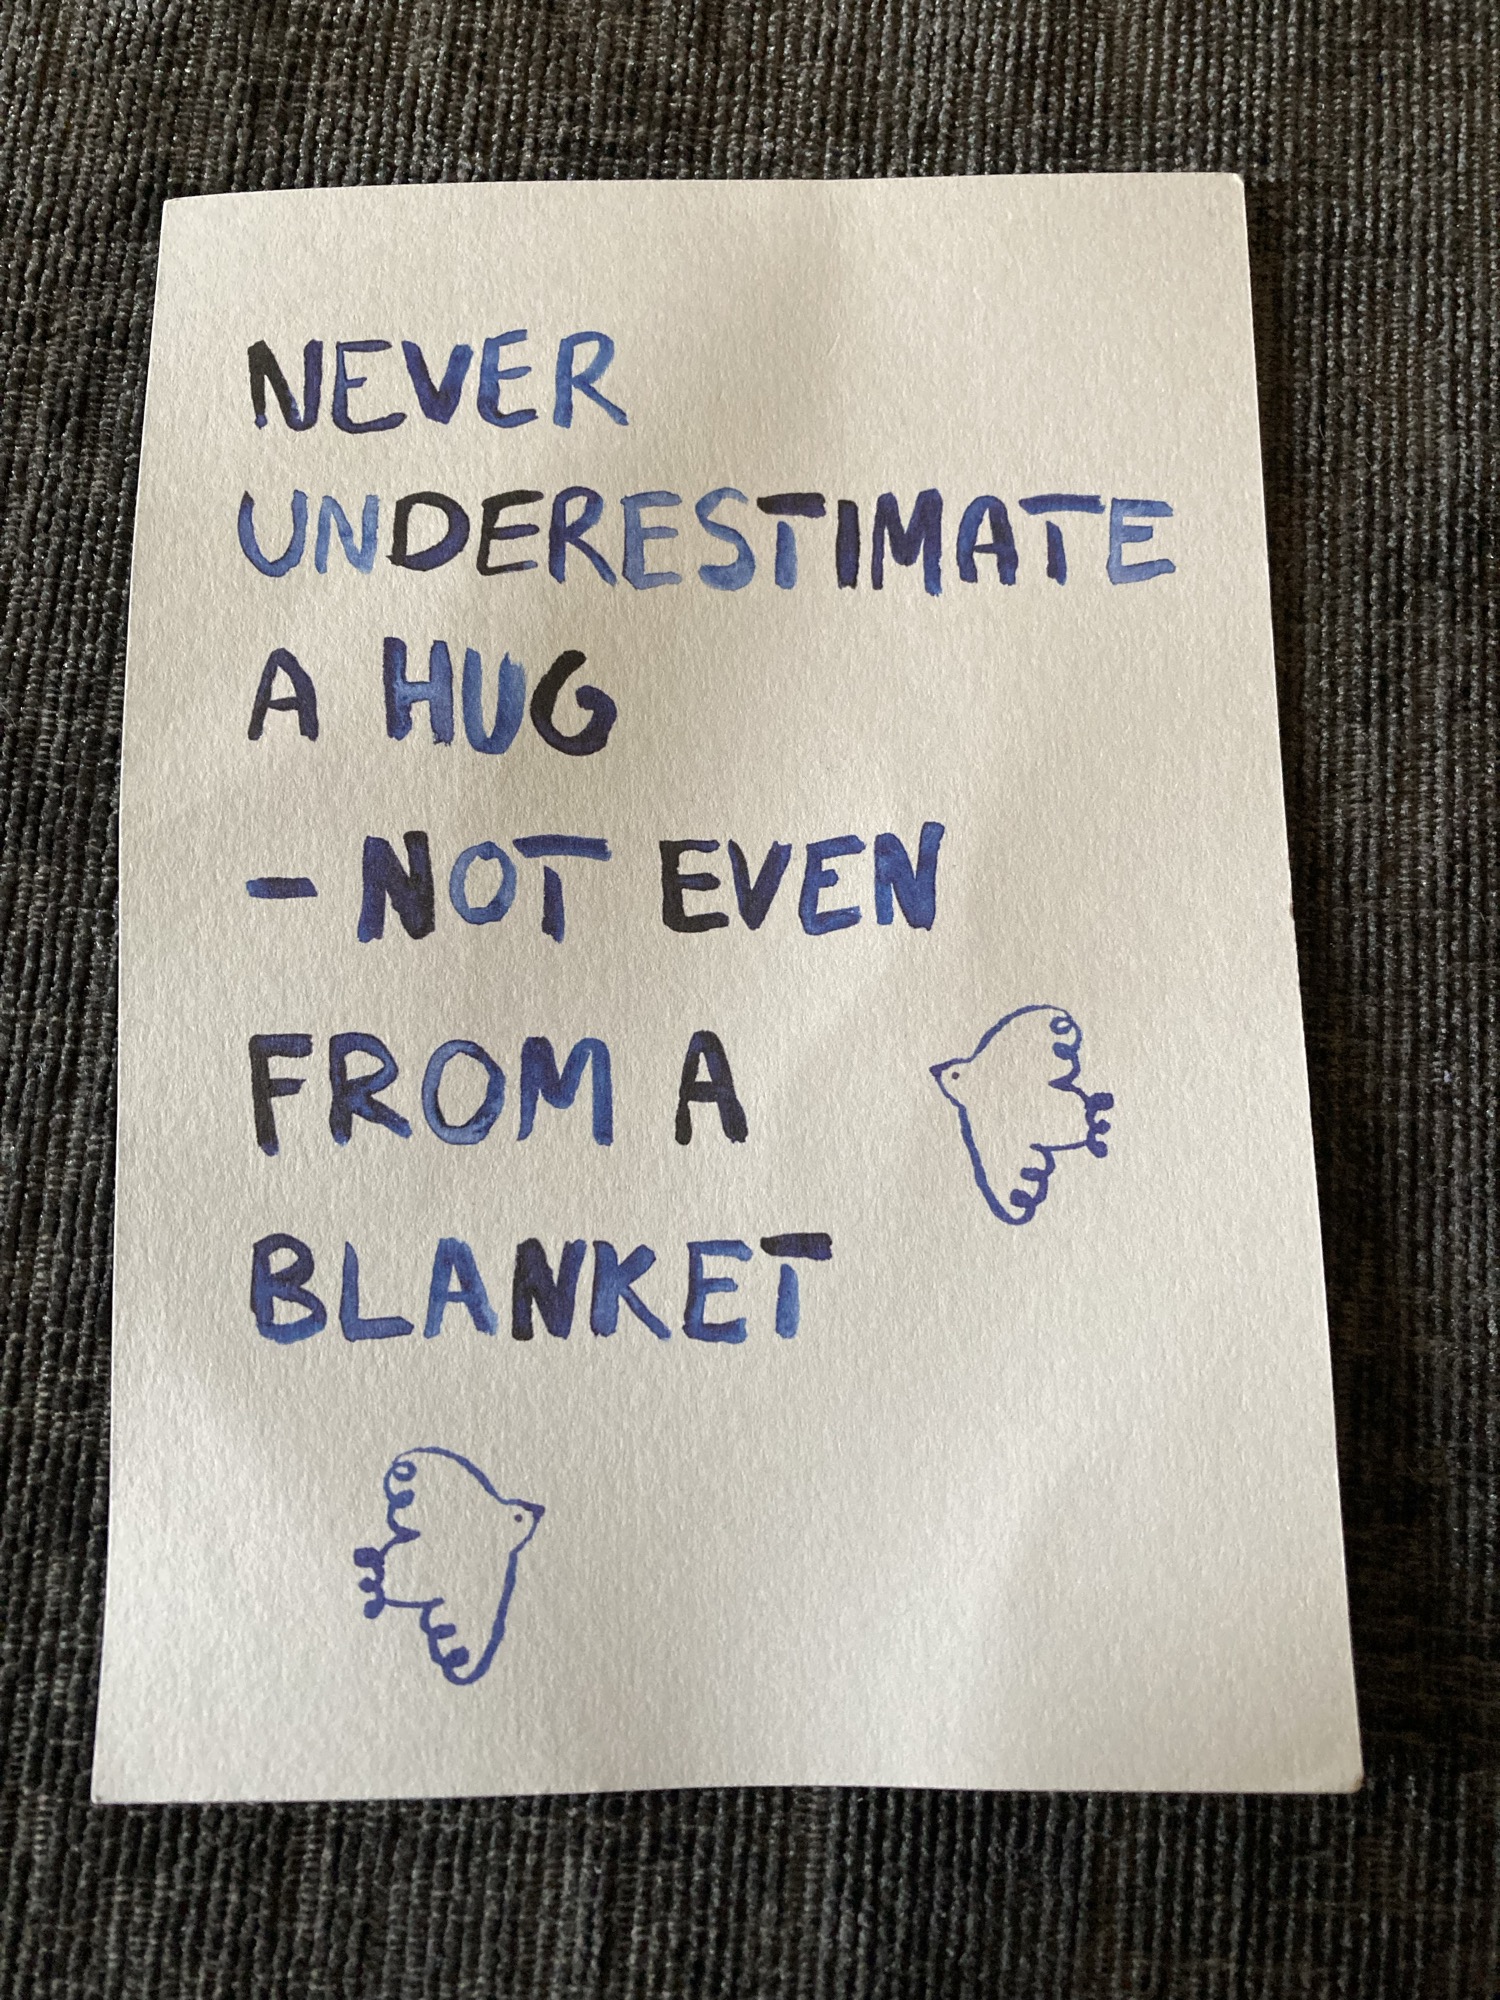 NEVER
UNDERESTIMATE
A HUG
- NOT EVEN
FROM A
BLANKET